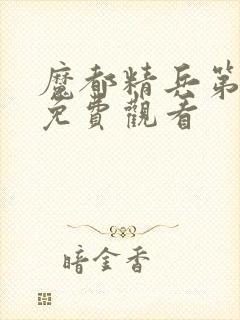 魔都精兵第
免費觀看
暗金香